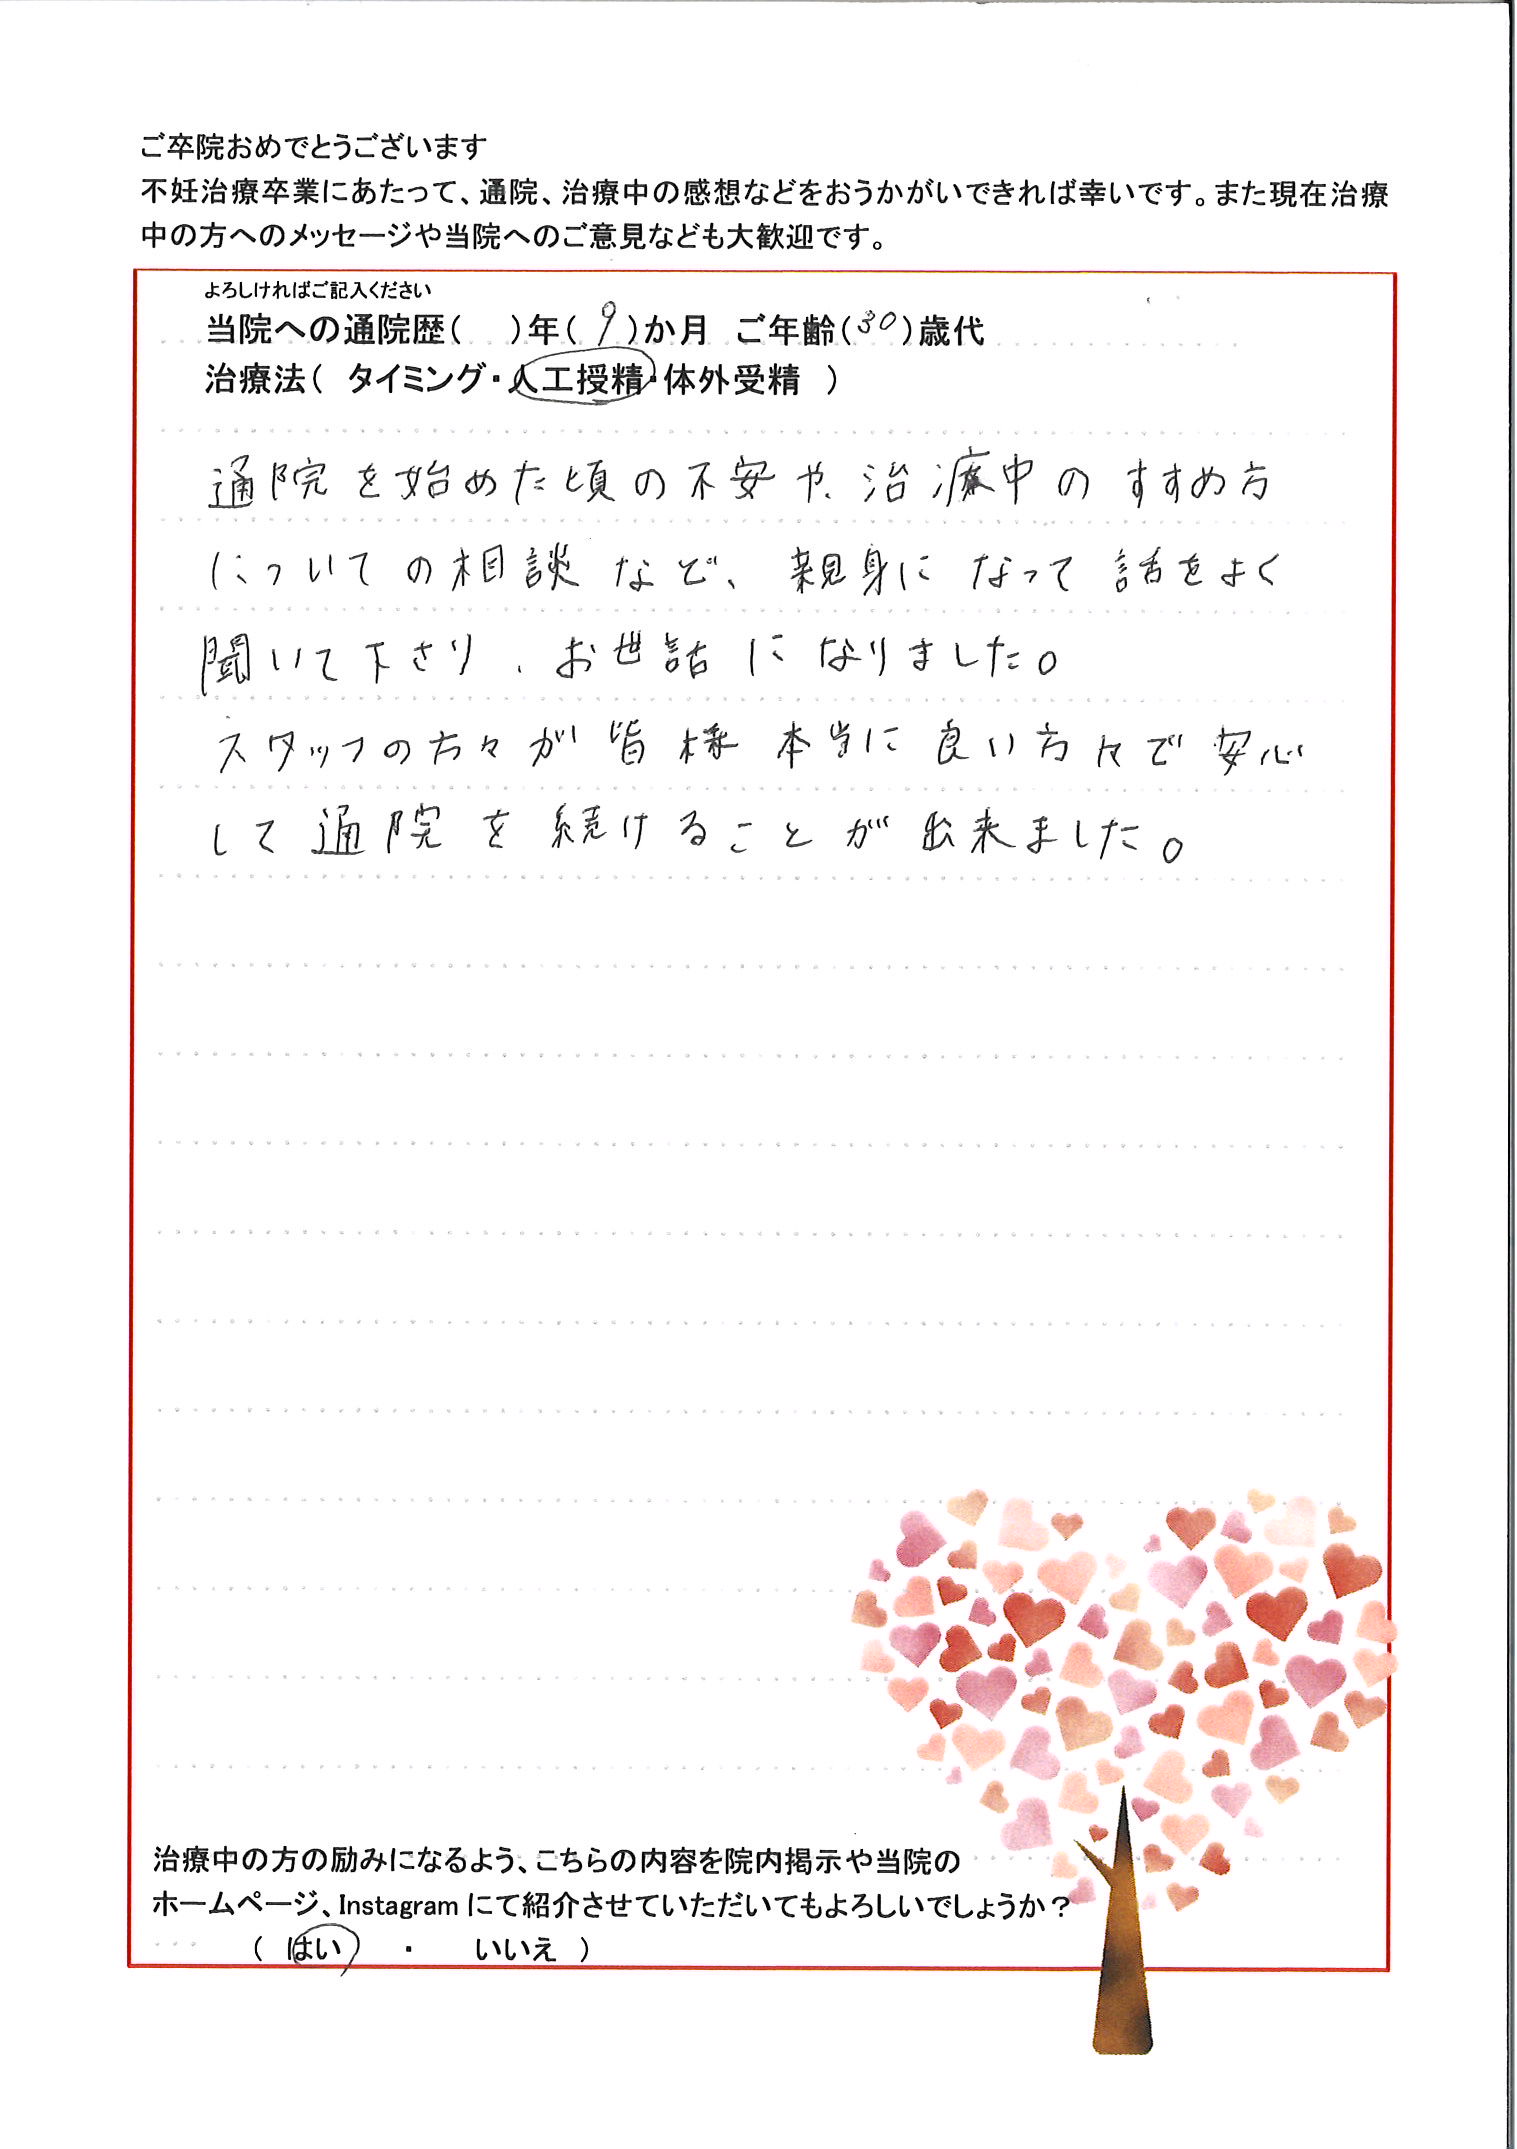 ご卒院おめでとうございます
不妊治療卒業にあたって、通院、治療中の感想などをおうかがいできれば幸いです。また現在治療
中の方へのメッセージや当院へのご意見なども大歓迎です。
よろしければご記入ください
当院への通院歴(　)年(9)か月　ご年齢(30)歳代
治療法(　タイミング・人工授精・体外受精　)
通院を始めた頃の不安や、治療中のすすめ方
についての相談など、親身になって話をよく
聞いて下さり、お世話になりました。
スタッフの方々が皆様本当に良い方々で安心
して通院を続けることが出来ました。
治療中の方の励みになるよう、こちらの内容を院内掲示や当院の
ホームページ、Instagramにて紹介させていただいてもよろしいでしょうか？
(　はい　・　いいえ　)